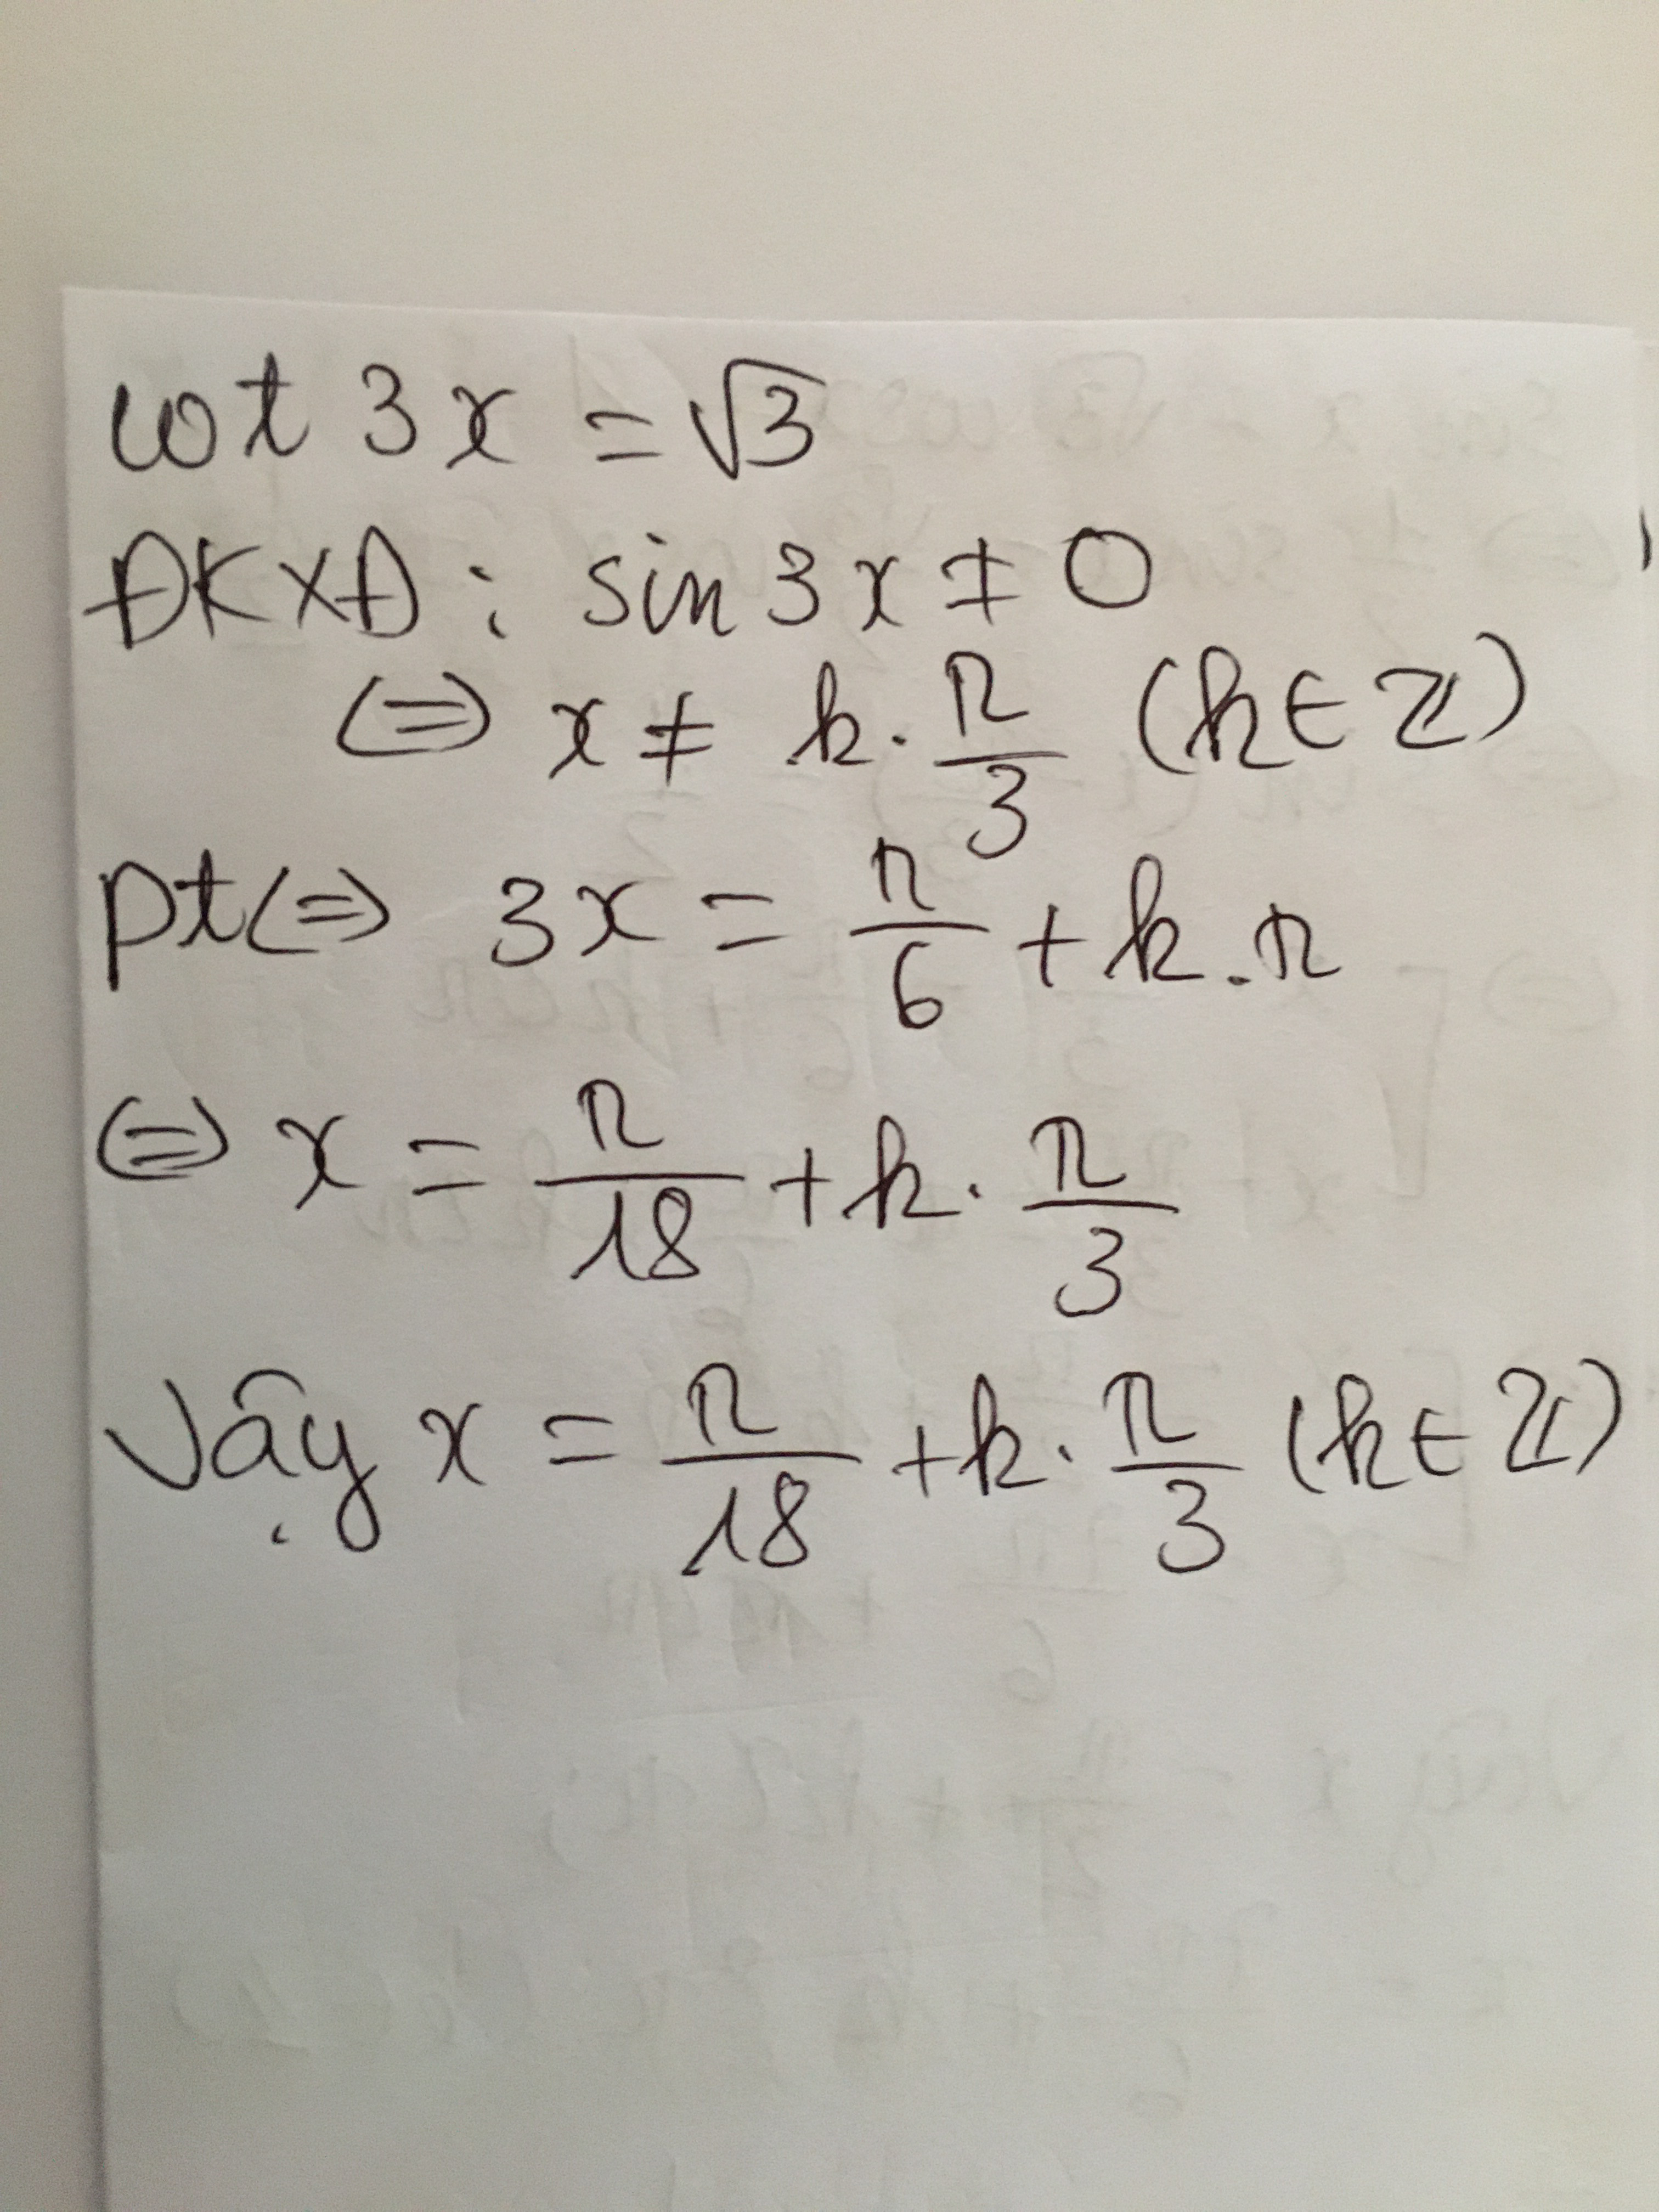 cot 3x = √3
ĐKXĐ: sin 3x ≠ 0
(=) x ≠ k. π/3 (k ∈ ℤ)
pt (=) 3x = π/6 + k. π
(=) x = π/18 + k. π/3
Vậy x = π/18 + k. π/3 (k ∈ ℤ)